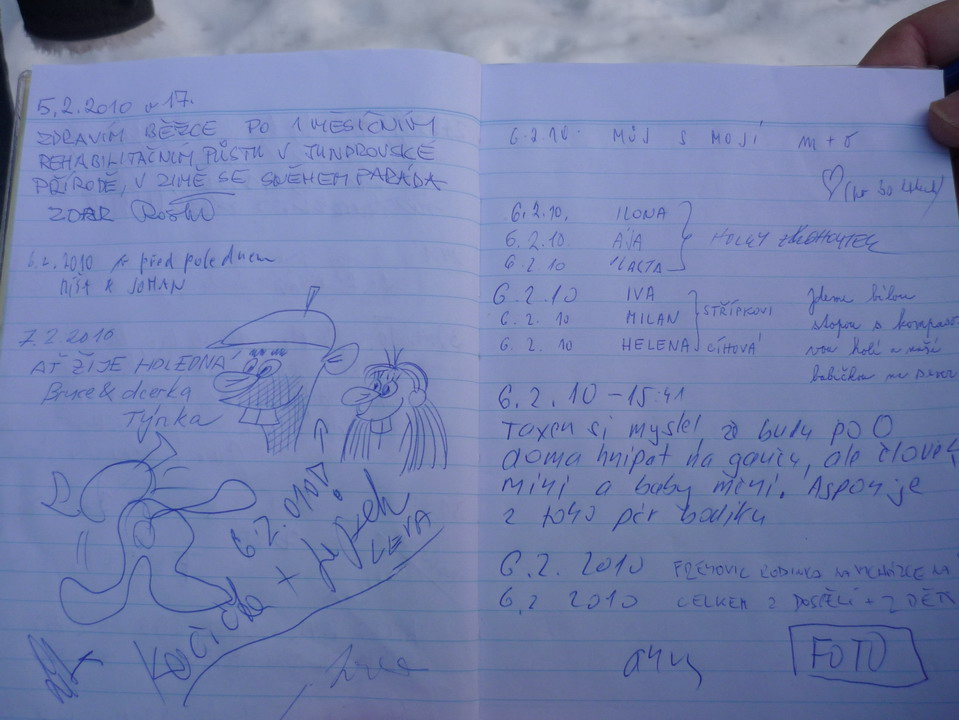 5.2.2010 v 17.
ZDRAVÍM BĚŽCE PO 1 MĚSÍČNÍM
REHABILITAČNÍM PŮSTU V JUNDROVSKÉ
PŘÍRODĚ, V ZIMĚ SE SNĚHEM PARÁDA
ZDAR
6.2.2010 před polednem
MÍŠA & JOHAN
7.2.2010
AŤ ŽIJE HOLEDNÁ
Bruce & dcerka
Týnka
6.2.2010!
Kočička +
6.2.10 MŮJ S MOJÍ m + 5
6.2.10. ILONA
6.2.10. AJA HOLKY
6.2.10
6.2.10 IVA STŘÍPKOVI
6.2.10 MILAN
6.2.10 HELENA CÍHOVÁ
Jdeme bílou
stopou s
holí a
babičkou na
6.2.10 – 15:41
Taxem si myslel že budu po O
doma hnípat na gauču, ale člověk
míní a baby mění. Aspoň je
z toho pár bodíku
6.2. 2010 RODINKA NA VYCHÁZCE NA
6.2 2010 CELKEM 2 DOSPĚLÍ + 2 DĚTI
FOTO